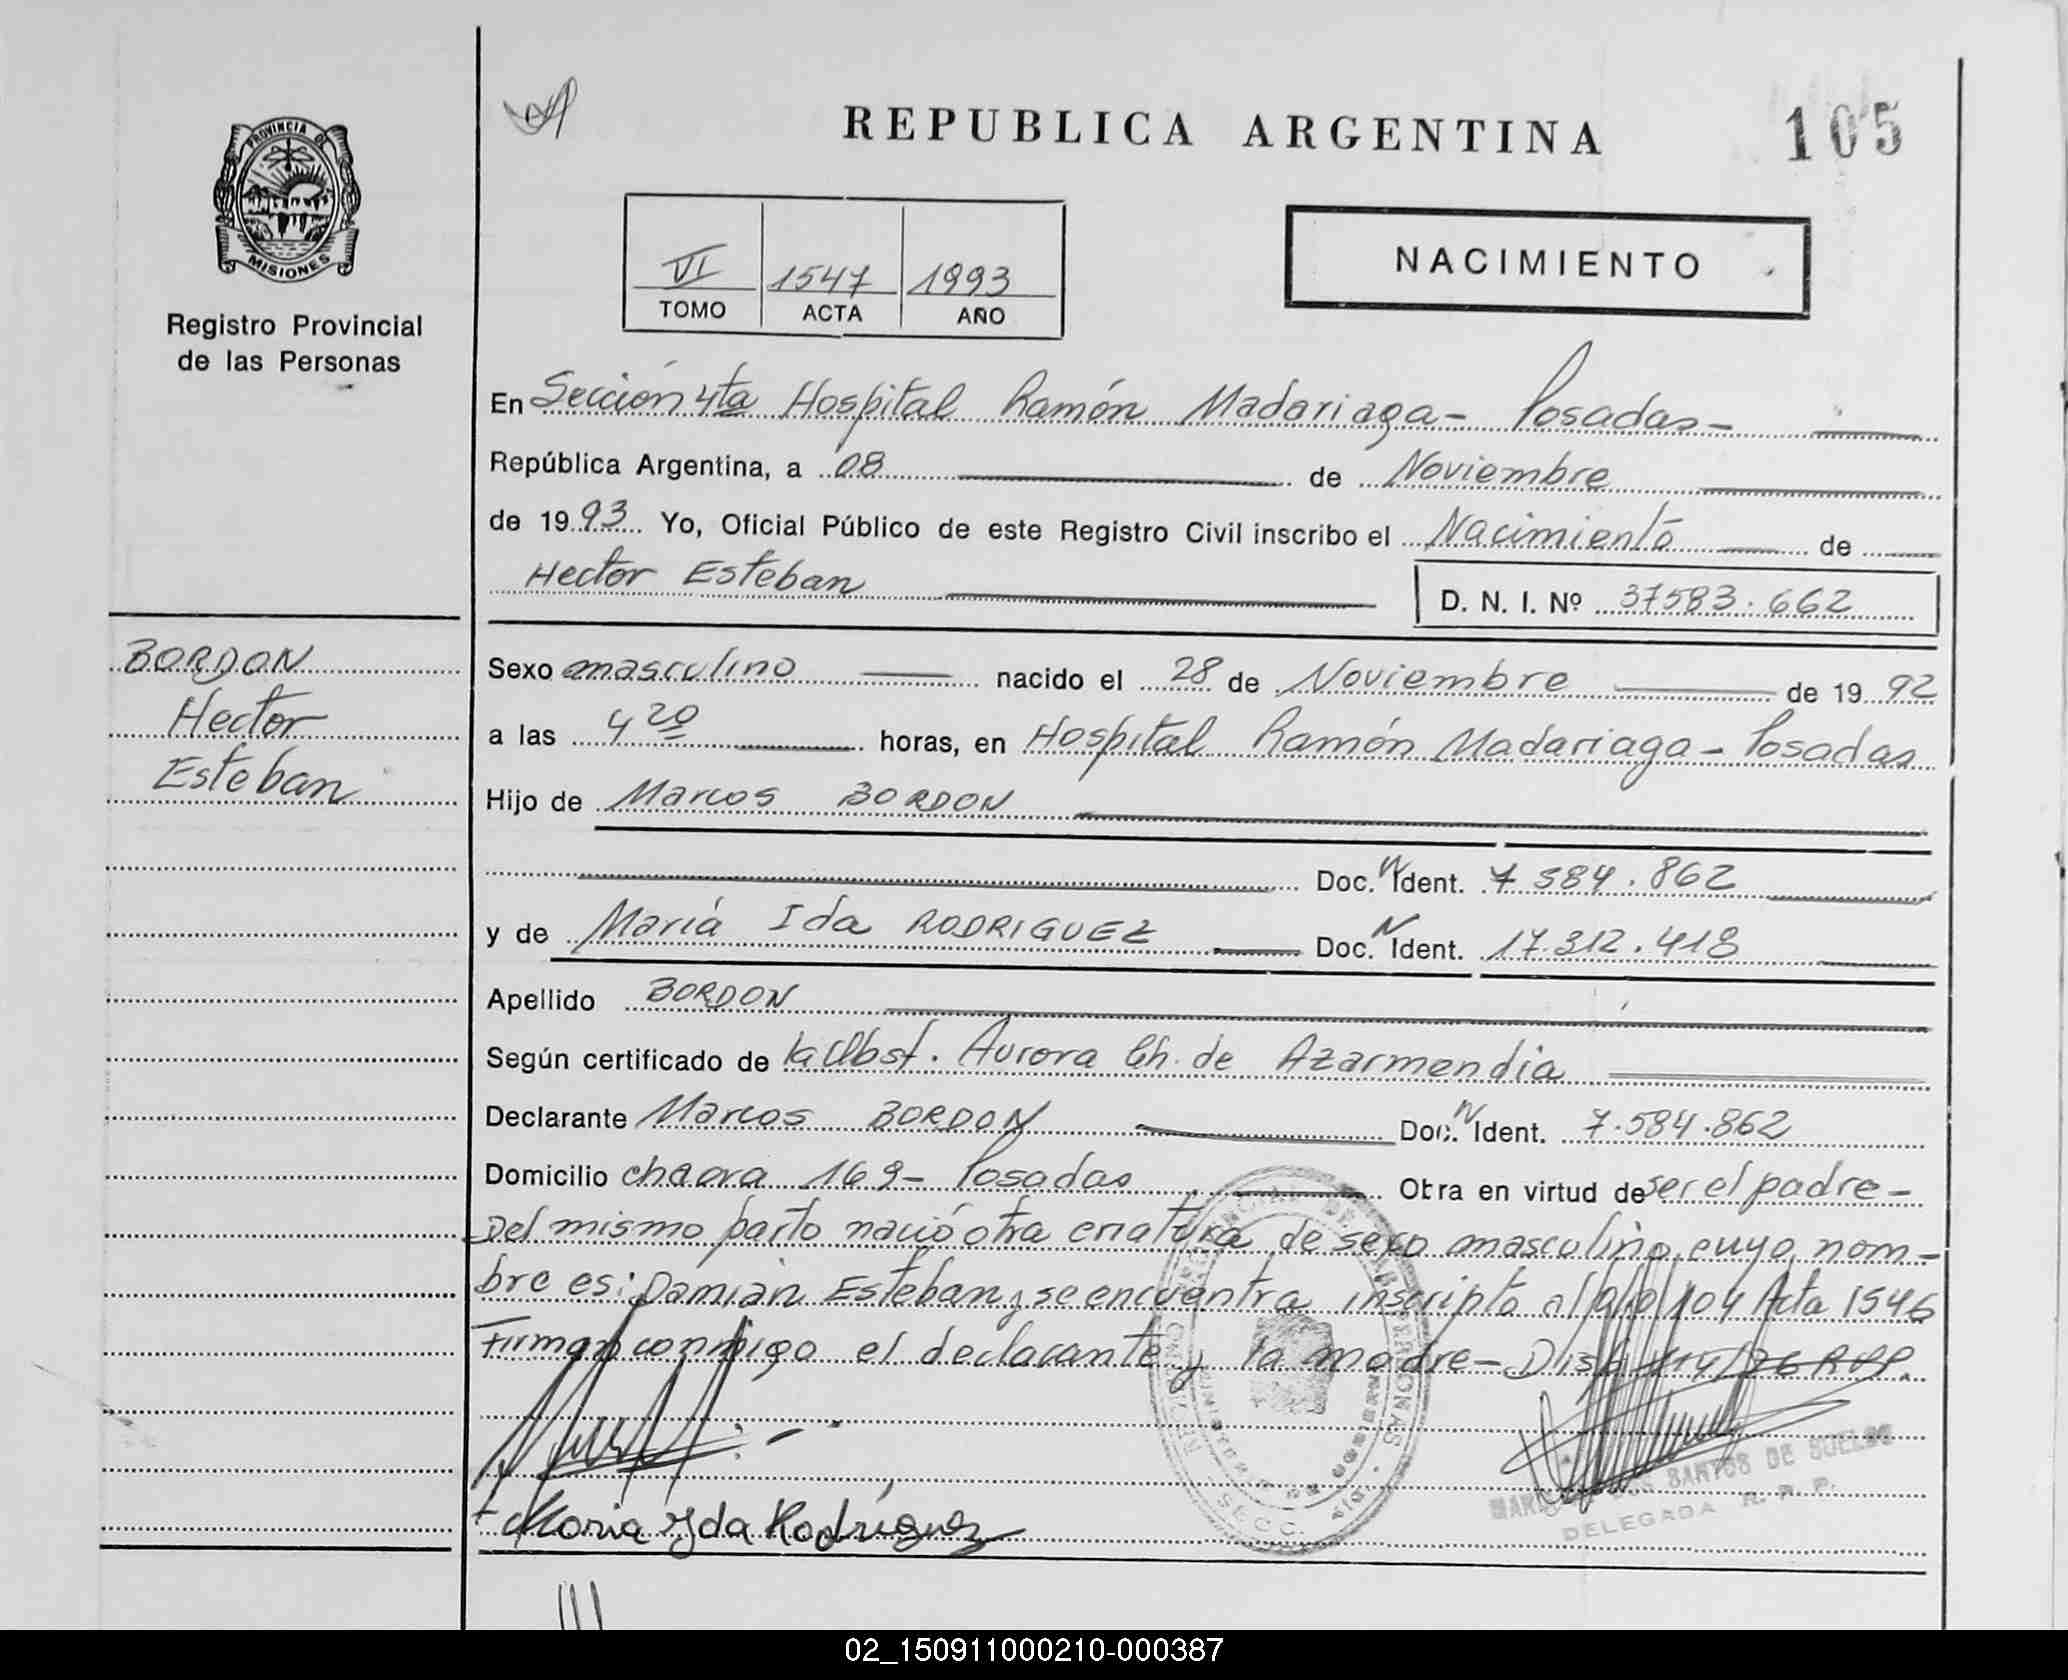 REPUBLICA ARGENTINA
105
PROVINCIA DE
MISIONES
Registro Provincial
de las Personas
VI 1547 1993
TOMO ACTA AÑO
NACIMIENTO
En Sección 4ta Hospital Ramón Madariaga - Posadas -
República Argentina, a 08 de Noviembre
de 1993 Yo, Oficial Público de este Registro Civil inscribo el Nacimiento de
Hector Esteban D. N. I. Nº 37583.662
BORDON
Hector
Esteban
Sexo masculino nacido el 28 de Noviembre de 1992
a las 4 20 horas, en Hospital Ramón Madariaga - Posadas
Hijo de Marcos BORDON
Doc. N Ident. 7 584.862
y de María Ida RODRIGUEZ Doc. N Ident. 17.312.418
Apellido BORDON
Según certificado de la Obst. Aurora Ch. de Azarmendia
Declarante Marcos BORDON Doc. N Ident. 7.584.862
Domicilio chacra 169 - Posadas Obra en virtud de ser el padre -
Del mismo parto nació otra criatura de sexo masculino cuyo nom-
bre es: Damián Esteban, se encuentra inscripto al folio 104 Acta 1546
Firman conmigo el declarante y la madre - Disp
SANTOS DE SUELDO
DELEGADA R. P. P.
Maria Yda Rodríguez
02_150911000210-000387